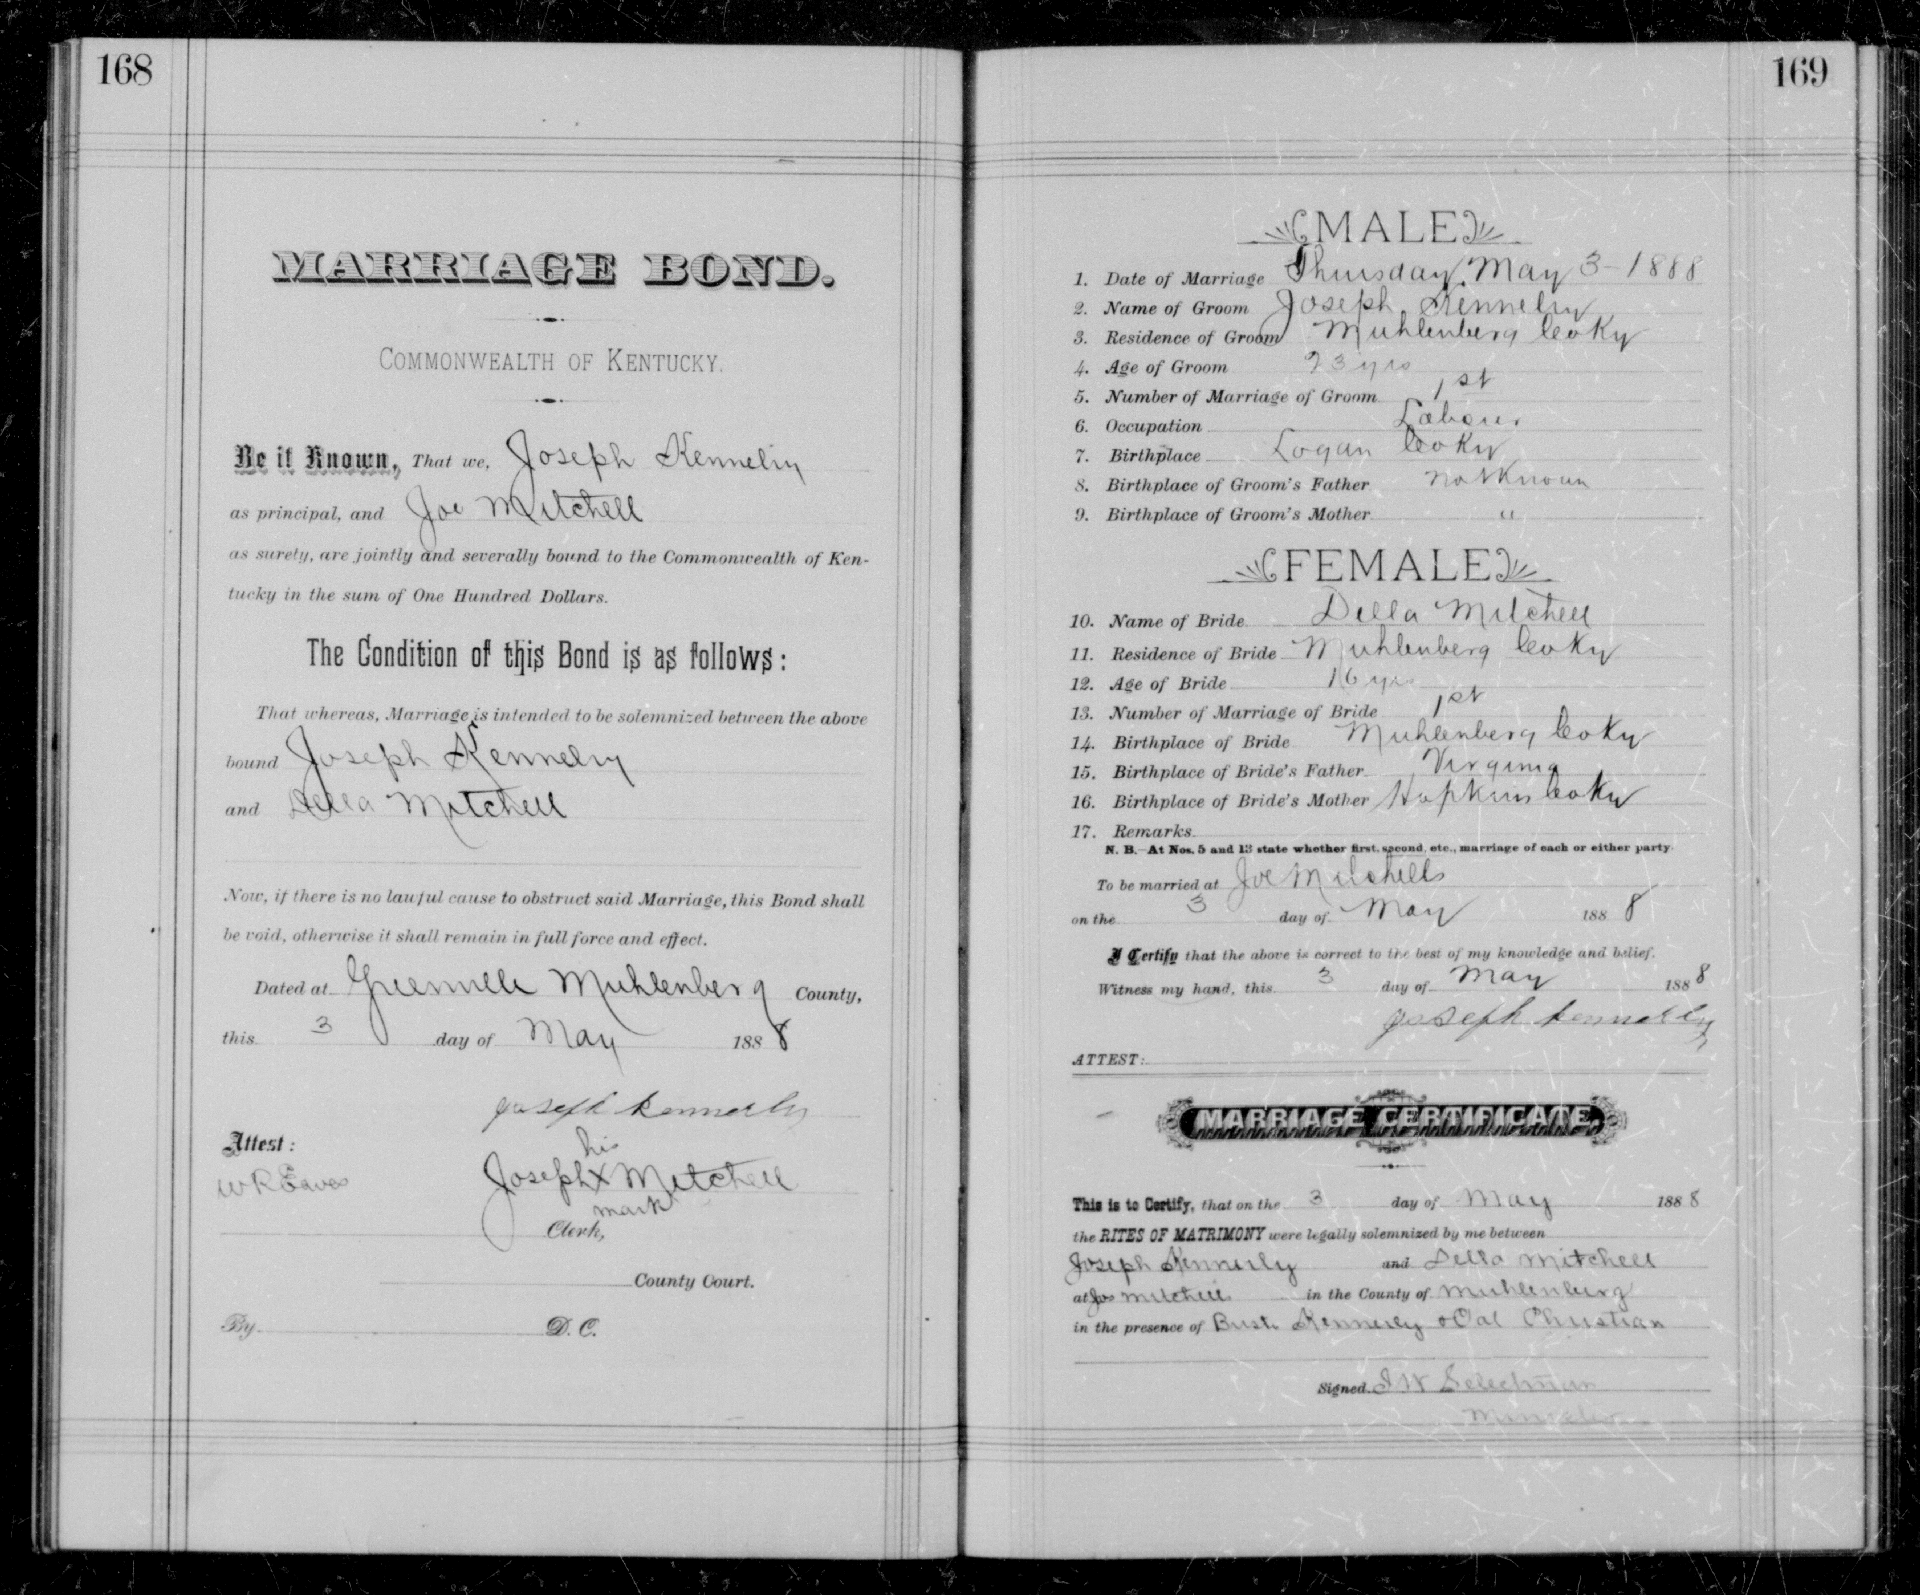 168
MARRIAGE BOND.
COMMONWEALTH OF KENTUCKY.
Be it Known, That we, Joseph Kennelly
as principal, and Joe Mitchell
as surety, are jointly and severally bound to the Commonwealth of Ken-
tucky in the sum of One Hundred Dollars.
The Condition of this Bond is as follows:
That whereas, Marriage is intended to be solemnized between the above
bound Joseph Kennelly
and Della Mitchell
Now, if there is no lawful cause to obstruct said Marriage, this Bond shall
be void, otherwise it shall remain in full force and effect.
Dated at Greenville Muhlenberg County,
this 3 day of May 1888
Joseph Kennerly
Attest: his
W R Eaves Joseph X Mitchell
mark
Clerk,
County Court.
By D. C.
169
MALE
1. Date of Marriage Thursday, May 3-1888
2. Name of Groom Joseph Kennelly
3. Residence of Groom Muhlenberg Co Ky
4. Age of Groom 23 yrs
5. Number of Marriage of Groom 1st
6. Occupation Laborer
7. Birthplace Logan Co Ky
8. Birthplace of Groom's Father not Known
9. Birthplace of Groom's Mother "
FEMALE
10. Name of Bride Della Mitchell
11. Residence of Bride Muhlenberg Co Ky
12. Age of Bride 16 yrs
13. Number of Marriage of Bride 1st
14. Birthplace of Bride Muhlenberg Co Ky
15. Birthplace of Bride's Father Virginia
16. Birthplace of Bride's Mother Hopkins Co Ky
17. Remarks
N. B.—At Nos. 5 and 13 state whether first, second, etc., marriage of each or either party.
To be married at Joe Mitchells
on the 3 day of May 1888
I Certify that the above is correct to the best of my knowledge and belief.
Witness my hand, this 3 day of May 1888
Joseph Kennerly
ATTEST:
MARRIAGE CERTIFICATE.
This is to Certify, that on the 3 day of May 1888
the RITES OF MATRIMONY were legally solemnized by me between
Joseph Kennerly and Della Mitchell
at Jos Mitchell in the County of Muhlenburg
in the presence of Kennerly & Cal Christian
Signed J W Selechman
Minister